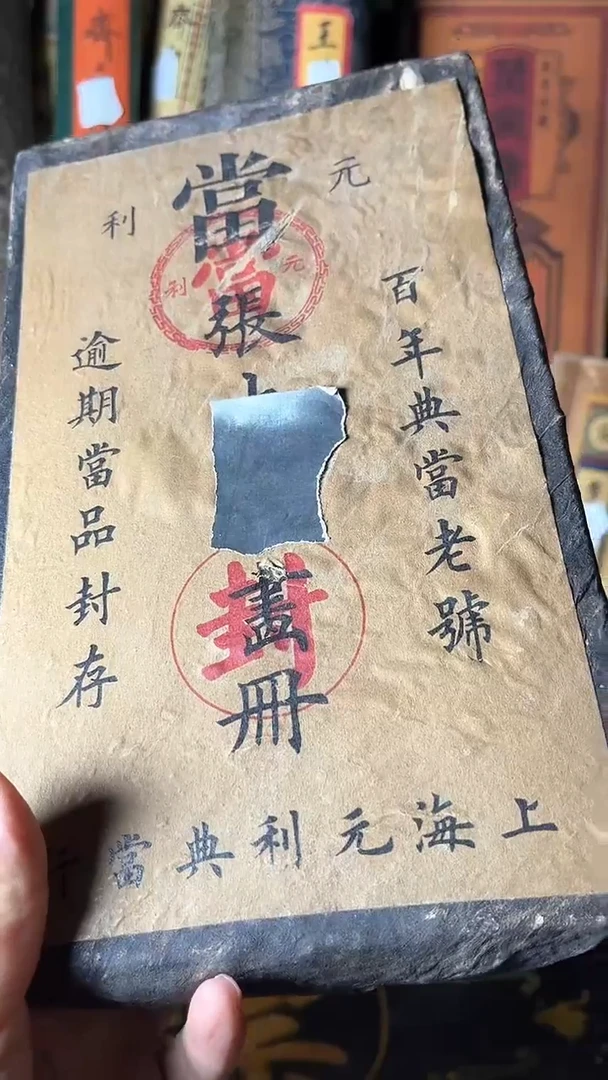 元利
當
百年典當老號
張
畫冊
逾期當品封存
上海元利典當行
元利
當
封
齊
王